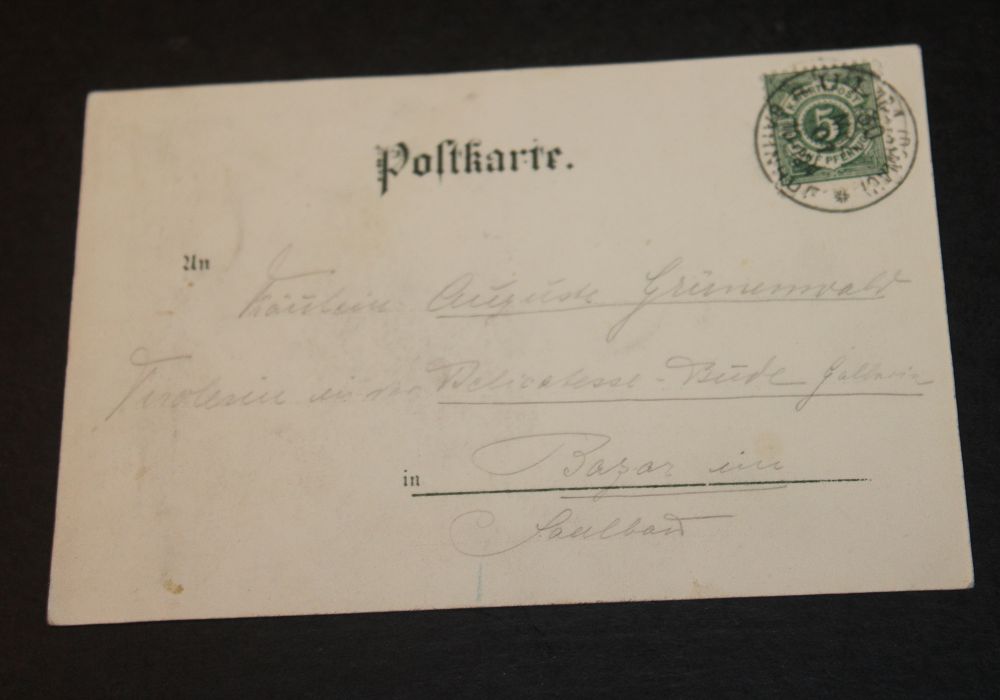 Postkarte.
5
FÜNF PFENNIG
An
Fräulein Auguste Grünenwald
Tirolerin in der Delicatesse-Bude Gallerie
Bazar im
in
Saalbau